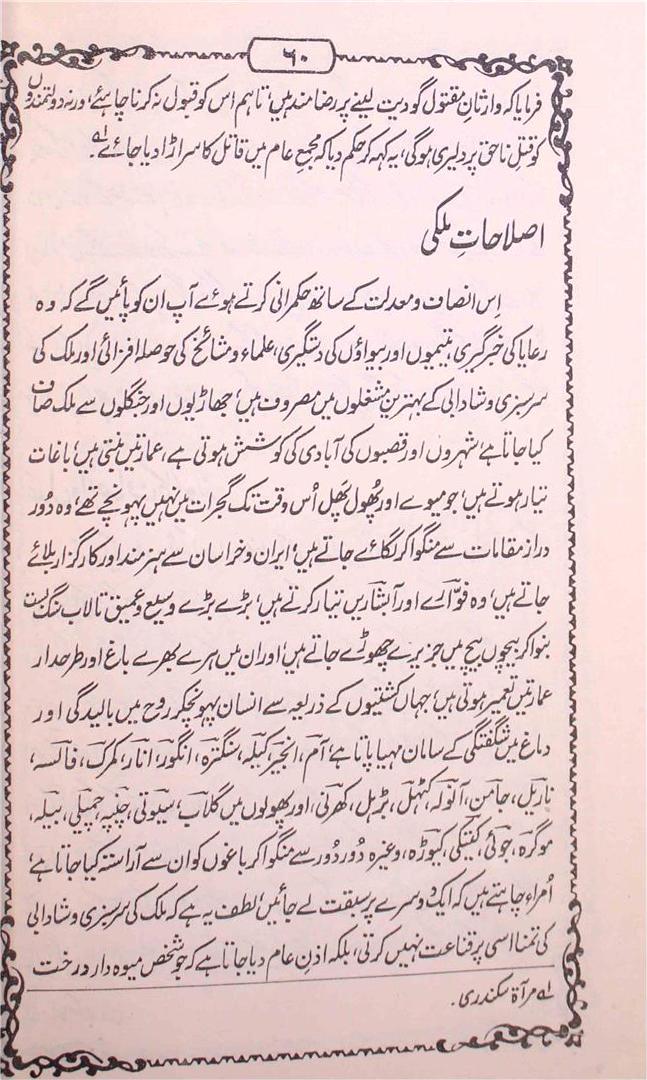 ۶۰
فرمایا کہ وارثانِ مقتول گو دیت لینے پر رضامند ہیں، تاہم اس کو قبول نہ کرنا چاہئے، ورنہ دولتمندوں
کو قتل ناحق پر دلیری ہوگی، یہ کہہ کر حکم دیا کہ مجمع عام میں قاتل کا سر اڑا دیا جائے لہ۔
اصلاحاتِ ملکی
اِس انصاف و معدلت کے ساتھ حکمرانی کرتے ہوئے آپ ان کو پائیں گے کہ وہ
رعایا کی خبرگیری، یتیموں اور بیواؤں کی دستگیری، علماء و مشائخ کی حوصلہ افزائی اور ملک کی
سرسبزی و شادابی کے بہترین مشغلوں میں مصروف ہیں، جھاڑیوں اور جنگلوں سے ملک صاف
کیا جاتا ہے، شہروں اور قصبوں کی آبادی کی کوشش ہوتی ہے، عمارتیں بنتی ہیں، باغات
تیار ہوتے ہیں، جو میوے اور پھُول پھَل اُس وقت تک گجرات میں نہیں پہونچے تھے، وہ دُور
دراز مقامات سے منگوا کر لگائے جاتے ہیں، ایران و خراسان سے ہنرمند اور کارگزار بلائے
جاتے ہیں، وہ فوّارے اور آبشاریں تیار کرتے ہیں، بڑے بڑے وسیع و عمیق تالاب سنگ بست
بنوا کر بیچوں بیچ میں جزیرے چھوڑے جاتے ہیں، اور ان میں ہرے بھرے باغ اور طرحدار
عمارتیں تعمیر ہوتی ہیں، جہاں کشتیوں کے ذریعہ سے انسان پہونچکر روح میں بالیدگی اور
دماغ میں شگفتگی کے سامان مہیا پاتا ہے، آم، انجیر، کیلہ، سنگترہ، انگور، انار، کمرک، فالسہ،
ناریل، جامن، آنولہ، کٹہل، بڑہل، کھرنی، اور پھولوں میں گلاب، سیوتی، چنپہ، چمپلی، بیلہ،
موگرہ، جوئی، کیتکی، کیوڑہ، وغیرہ دُور دُور سے منگوا کر باغوں کو ان سے آراستہ کیا جاتا ہے،
اُمراء چاہتے ہیں کہ ایک دوسرے پر سبقت لے جائیں، لطف یہ ہے کہ ملک کی سرسبزی و شادابی
کی تمنا اسی پر قناعت نہیں کرتی، بلکہ اذنِ عام دیا جاتا ہے کہ جو شخص میوہ دار درخت
لہ مرآۃ سکندری۔